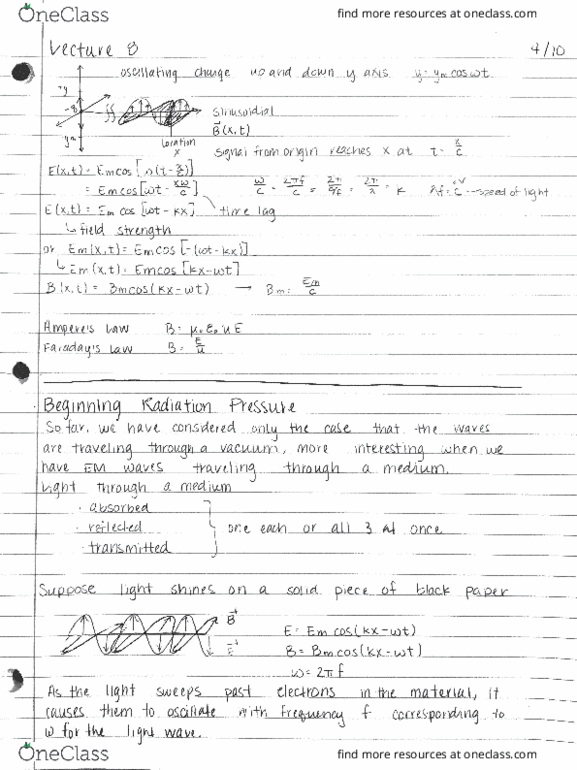 OneClass
find more resources at oneclass.com
Lecture 8 4/10
oscillating charge up and down y axis y = ym cos ωt
+y
sinusoidial
B⃗(x,t)
location
x
signal from origin reaches x at t = x/c
= Em cos[ωt - xω/c] ω/c = 2πf/c = 2π/λ = k
E(x,t) = Em cos[ωt - kx] time lag
speed of light
↳ field strength
or Em(x,t) = Em cos[-(ωt - kx)]
↳ Em(x,t) = Em cos[kx - ωt]
B(x,t) = Bm cos(kx - ωt) → Bm = Em/c
Ampere's Law B = μ₀ε₀uE
Faraday's Law B = E/u
Beginning Radiation Pressure
So far, we have considered only the case that the waves
are traveling through a vacuum, more interesting when we
have EM waves traveling through a medium.
Light through a medium
· absorbed
· reflected } one each or all 3 at once
· transmitted
Suppose light shines on a solid piece of black paper
B⃗
E⃗
E = Em cos(kx - ωt)
B = Bm cos(kx - ωt)
ω = 2πf
As the light sweeps past electrons in the material, it
causes them to oscillate with frequency f corresponding to
ω for the light wave.
OneClass
find more resources at oneclass.com